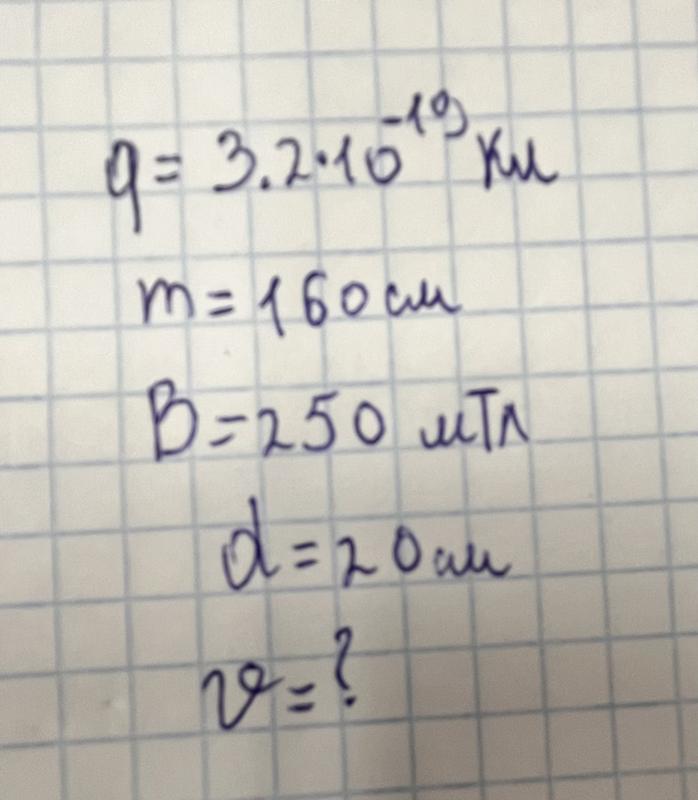 q = 3.2·10⁻¹⁹ Кл
m = 160 см
B = 250 мТл
d = 20 см
v = ?